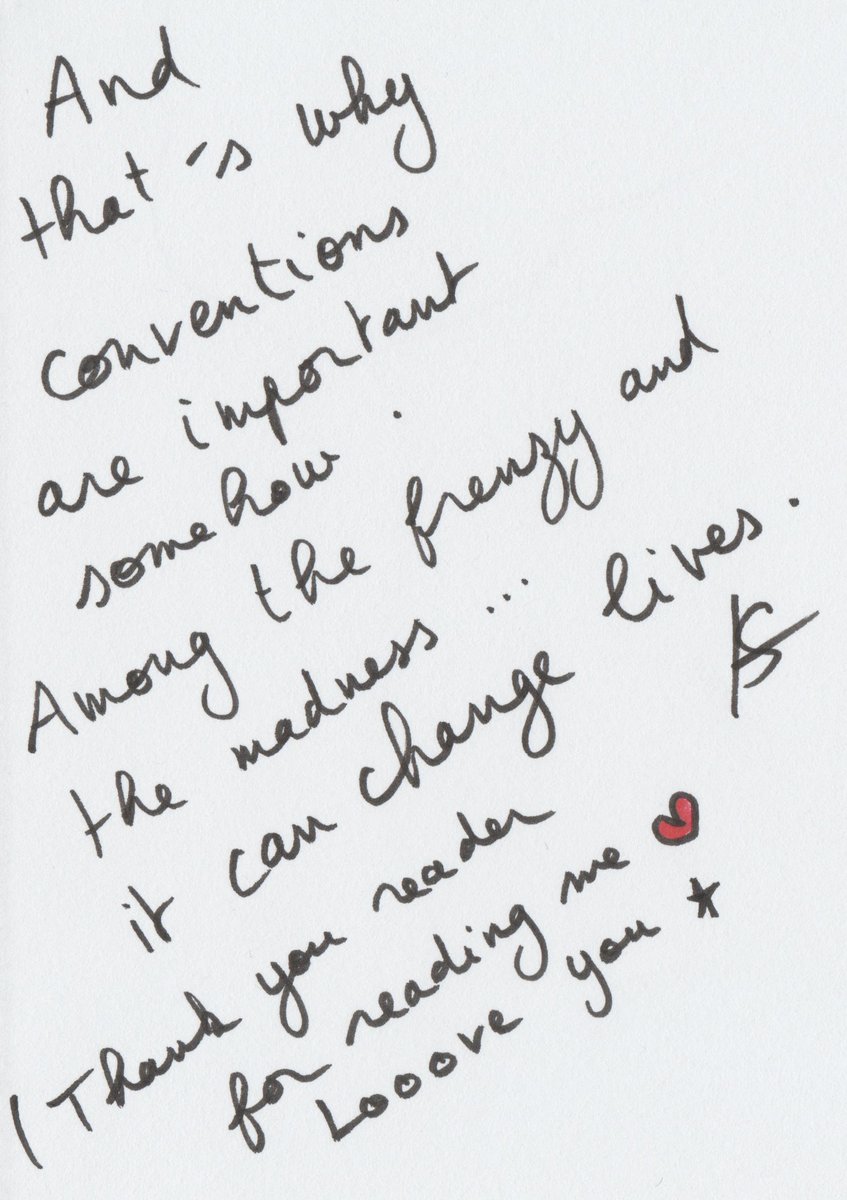 And
that's why
conventions
are important
somehow.
Among the frenzy and
the madness...
it can change lives.
KS
(Thank you reader
for reading me
Looove you